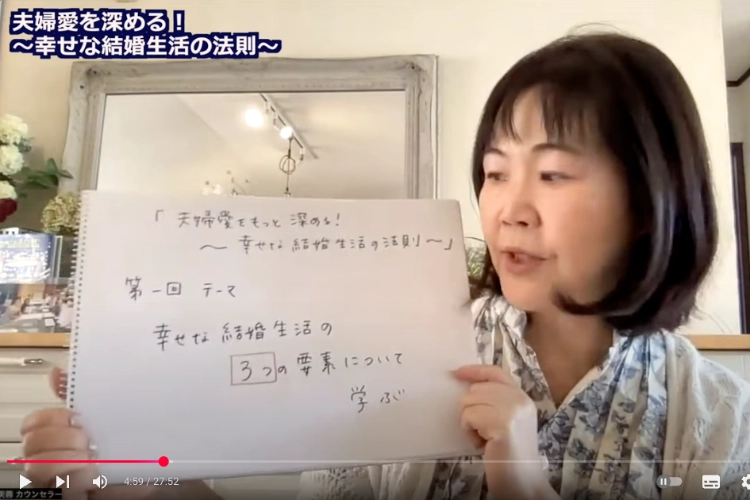 夫婦愛を深める！
～幸せな結婚生活の法則～
「夫婦愛をもっと深める!
～幸せな結婚生活の法則～」
第一回 テーマ
幸せな結婚生活の
3つの要素について
学ぶ
4:59 / 27:52
カウンセラー